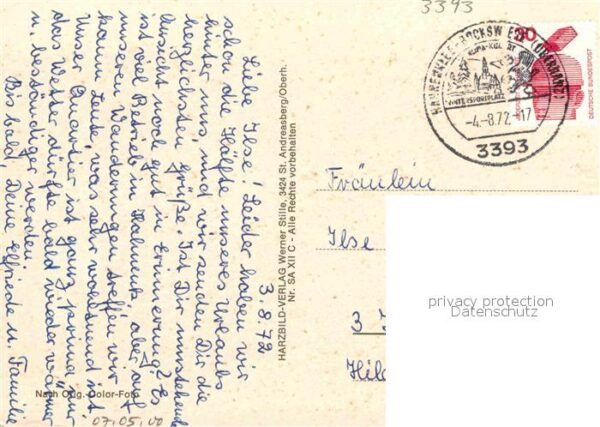 3393
3.8.72
Liebe Ilse! Leider haben wir
schon die Hälfte unseres Urlaubs
hinter uns, und wir senden Dir die
herzlichsten Grüße. Ist Dir umstehende
Ansicht noch gut in Erinnerung? Es
ist viel Betrieb in Hahnenk. aber auf
unseren Wanderungen treffen wir
kaum Leute, was sehr wohltuend ist.
Unser Quartier ist ganz prima, nur
das Wetter dürfte bald wieder wärmer
u. beständiger werden.
Bis bald, Deine Elfriede u. Familie
HARZBILD-VERLAG Werner Stille, 3424 St. Andreasberg/Oberh.
Nr. SA XII C - Alle Rechte vorbehalten
Nach Orig.-Color-Foto
07.05.00
HAHNENKLEE-BOCKSWIESE (OBERHARZ)
-4.-8.72.-17
3393
DEUTSCHE BUNDESPOST
Fräulein
Ilse
3
Hild
privacy protection
Datenschutz